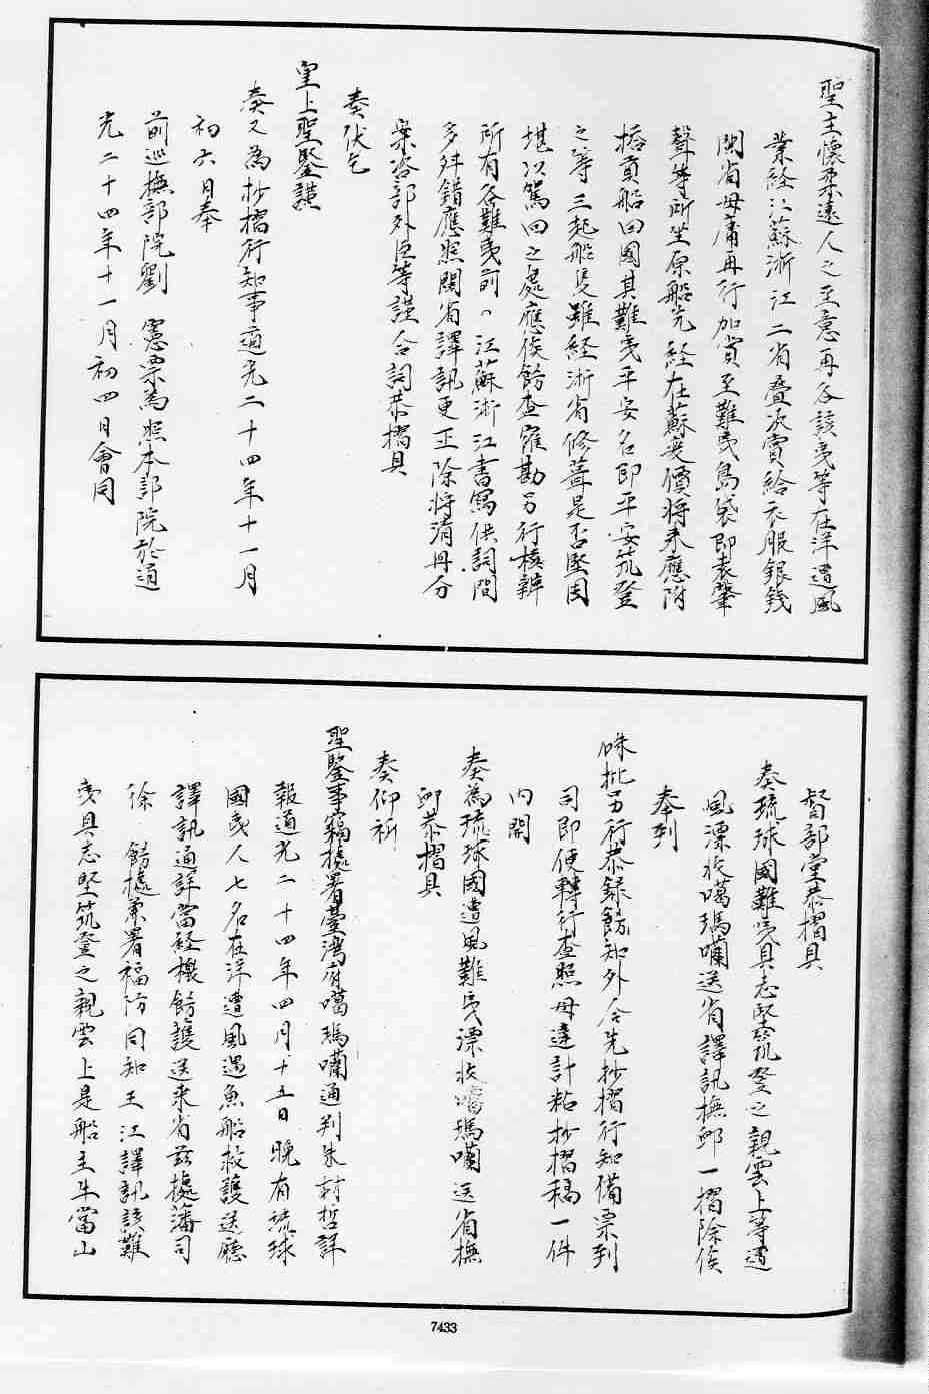 聖主懷柔遠人之至意再各該夷等在洋遭風
業經江蘇浙江二省疊次賞給衣服銀錢
閩省毋庸再行加賞至難夷島袋即袁肇
聲等所坐原船先經在蘇變價將來應附
搭貢船回國其難夷平安名即平安筑登
之等三起船隻雖經浙省修葺是否堅固
堪以駕回之處應俟飭查確勘另行核辦
所有各難夷前、江蘇浙江書寫供詞間
多舛錯應照閩省譯訊更正除將清冊分
案咨部外臣等謹合詞恭摺具
奏伏乞
皇上聖鑒謹
奏又為抄摺行知事道光二十四年十一月
初六日奉
前巡撫部院劉　憲票為照本部院於道
光二十四年十一月初四日會同
督部堂恭摺具
奏琉球國難夷具志堅筑登之親雲上等遭
風漂收噶瑪囒送省譯訊撫卹一摺除俟
奉到
硃批另行恭錄飭知外合先抄摺行知備票到
司即便轉行查照毋違計粘抄摺稿一件
內開
奏為琉球國遭風難夷漂收噶瑪囒送省撫
卹恭摺具
奏仰祈
聖鑒事竊據署臺灣府噶瑪囒通判朱材哲詳
報道光二十四年四月十五日晚有琉球
國夷人七名在洋遭風遇魚船救護送廳
譯訊通詳當經檄飭護送來省茲據藩司
徐　飭據兼署福防同知王江譯訊該難
夷具志堅筑登之親雲上是船主牛當山
7433